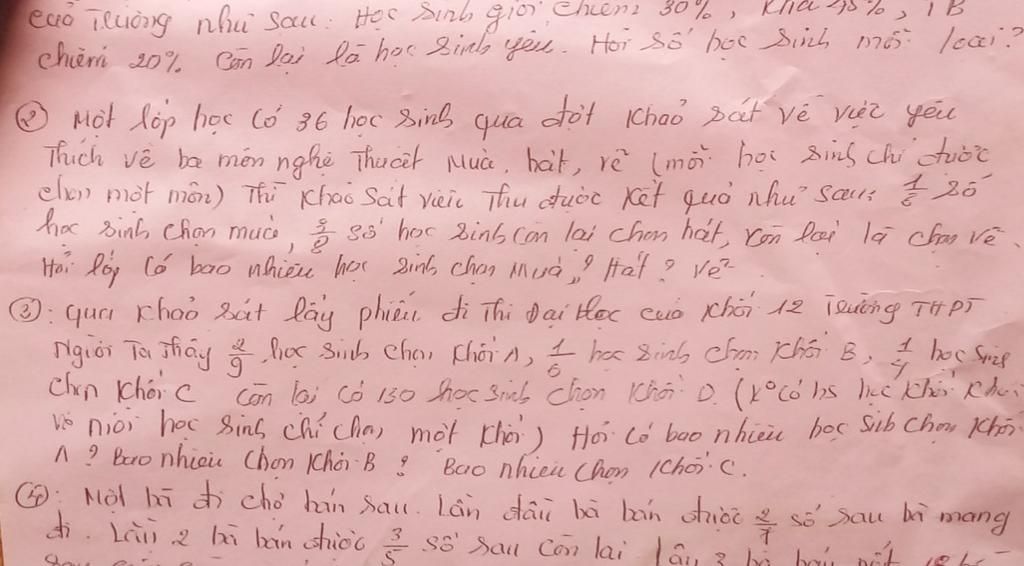 của Trường như sau: Học sinh giỏi chiếm 30%, khá 45%, TB
chiếm 20% Còn lại là học sinh yếu. Hỏi số học sinh mỗi loại?
② Một lớp học có 36 học sinh qua đợt khảo sát về việc yêu
Thích về ba môn nghệ Thuật Múa, hát, vẽ (mỗi học sinh chỉ được
chọn một môn) Thì khảo sát viên Thu được kết quả như sau: số
học sinh chọn múa, số học sinh còn lại chọn hát, còn lại là chọn vẽ.
Hỏi lớp có bao nhiêu học sinh chọn Múa? Hát? Vẽ?
③: qua khảo sát lấy phiếu đi Thi Đại Học của khối 12 Trường THPT
Người Ta Thấy 2/9 học sinh chọn khối A, 1/6 học sinh chọn khối B, học sinh
chọn khối C còn lại có 130 học sinh chọn khối D. (K° có hs học khối khác
và mỗi học sinh chỉ chọn một khối) Hỏi có bao nhiêu học sinh chọn khối
A? Bao nhiêu chọn khối B? Bao nhiêu chọn khối C.
④: Một bà đi chợ bán sau. Lần đầu bà bán được 2/7 số sau bà mang
đi. Lần 2 bà bán được 3/5 số sau còn lại Lần 3 bà bán nốt